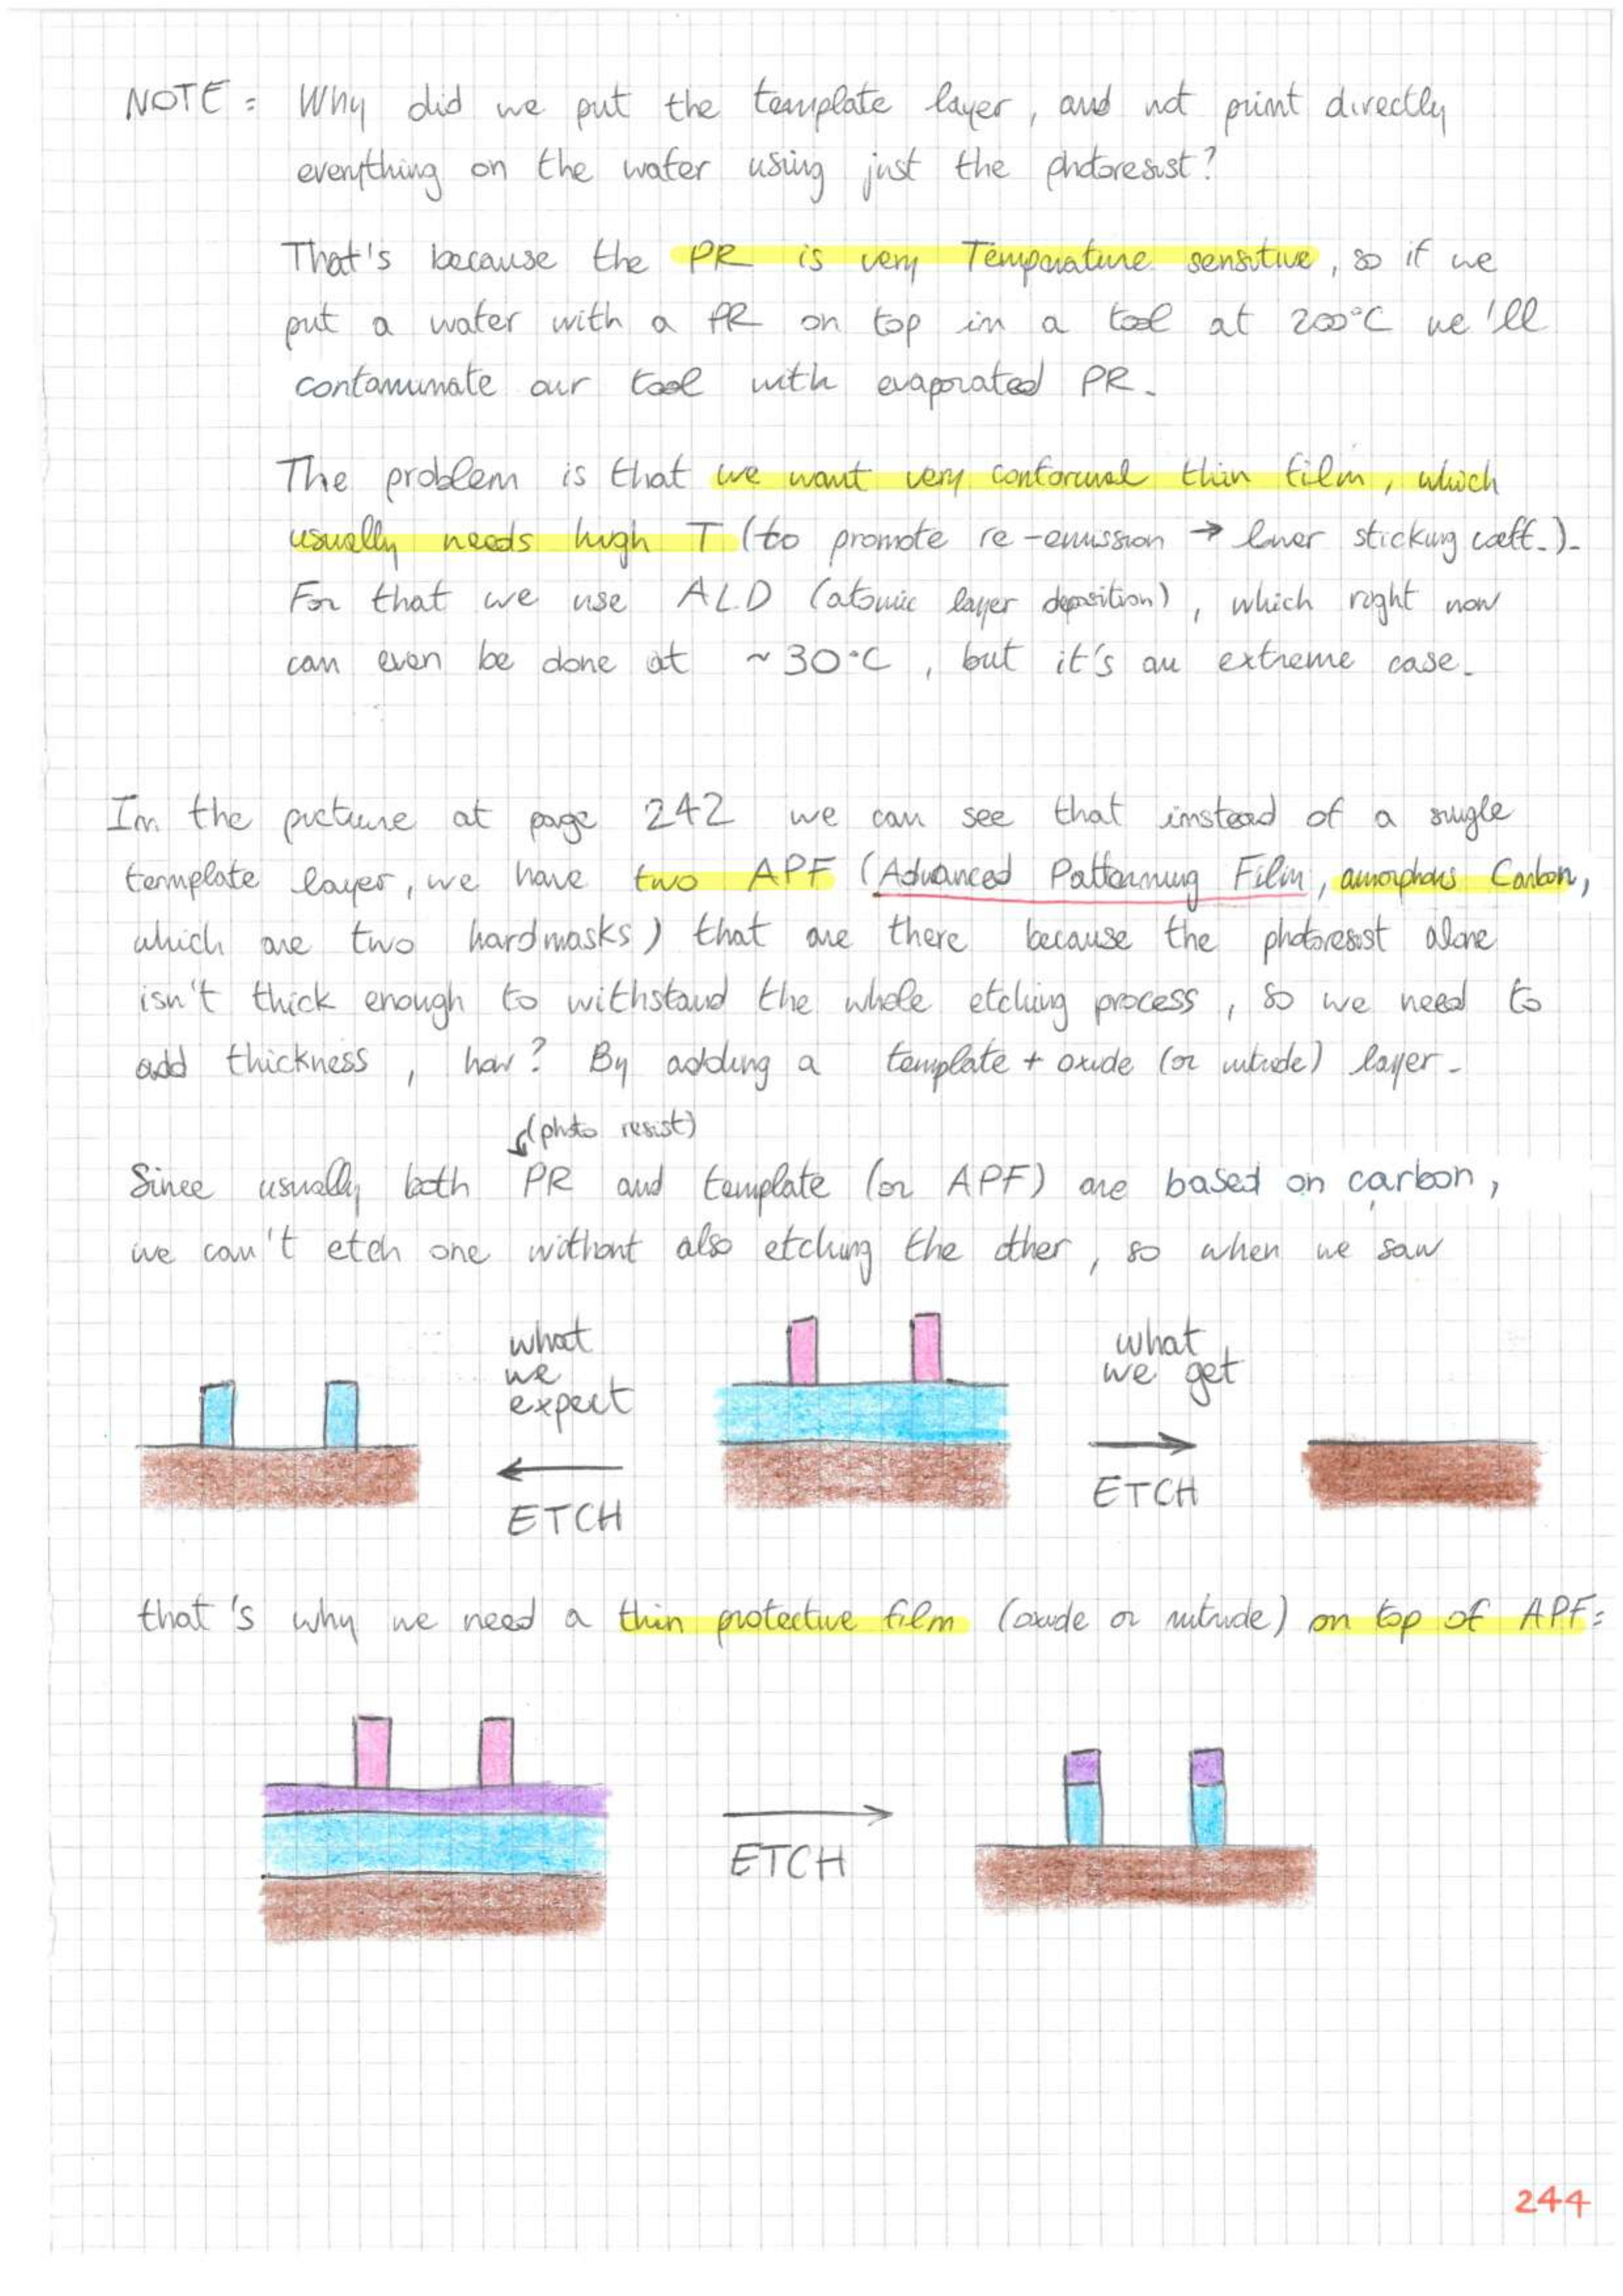 NOTE: Why did we put the template layer, and not print directly
everything on the wafer using just the photoresist?
That's because the PR is very Temperature sensitive, so if we
put a wafer with a PR on top in a tool at 200°C we'll
contaminate our tool with evaporated PR.
The problem is that we want very conformal thin film, which
usually needs high T (to promote re-emission → lower sticking coeff.).
For that we use ALD (atomic layer deposition), which right now
can even be done at ~30°C, but it's an extreme case.
In the picture at page 242 we can see that instead of a single
template layer, we have two APF (Advanced Patterning Film, amorphous Carbon,
which are two hardmasks) that are there because the photoresist alone
isn't thick enough to withstand the whole etching process, so we need to
add thickness, how? By adding a template + oxide (or nitride) layer.
(photo resist)
Since usually both PR and template (or APF) are based on carbon,
we can't etch one without also etching the other, so when we saw
what
we
expect
ETCH
what
we get
ETCH
that's why we need a thin protective film (oxide or nitride) on top of APF:
ETCH
244